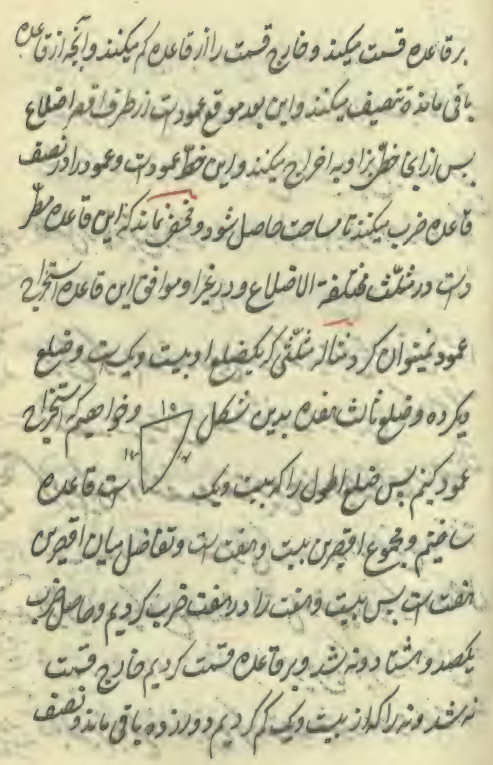 بر قاعده قسمت میکند و خارج قسمت را از قاعده کم میکنند و آنچه از قاعده
باقی مانده تنصیف میکنند و این بعد موقع عمود است از طرف اقصر اضلاع
پس از اینجا خطی بزاویه اخراج میکنند و این خط عمود است و عمود را در نصف
قاعده ضرب میکنند تا مساحت حاصل شود و مخفی نماند که این قاعده مطّر
دست در مثلّث مختلفة الاضلاع و در غیر او موافق این قاعده استخراج
عمود نمیتوان کرد مثاله مثلّثی که یکضلع او بیست و یکست و ضلع
دیگر ده و ضلع ثالث هفده بدین شکل و خواهیم که استخراج
۱۰
۱۷
عمود کنیم پس ضلع اطول را که بیست و یک است قاعده
ساختیم و مجموع اقصرین بیست و هفت است و تفاضل میان اقصرین
هفت است پس بیست و هفت را در هفت ضرب کردیم و حاصل ضرب
یکصد و هشتاد و نه شد و بر قاعده قسمت کردیم خارج قسمت
نه شد و نه را که از بیست و یک کم کردیم دوازده باقی ماند و نصف